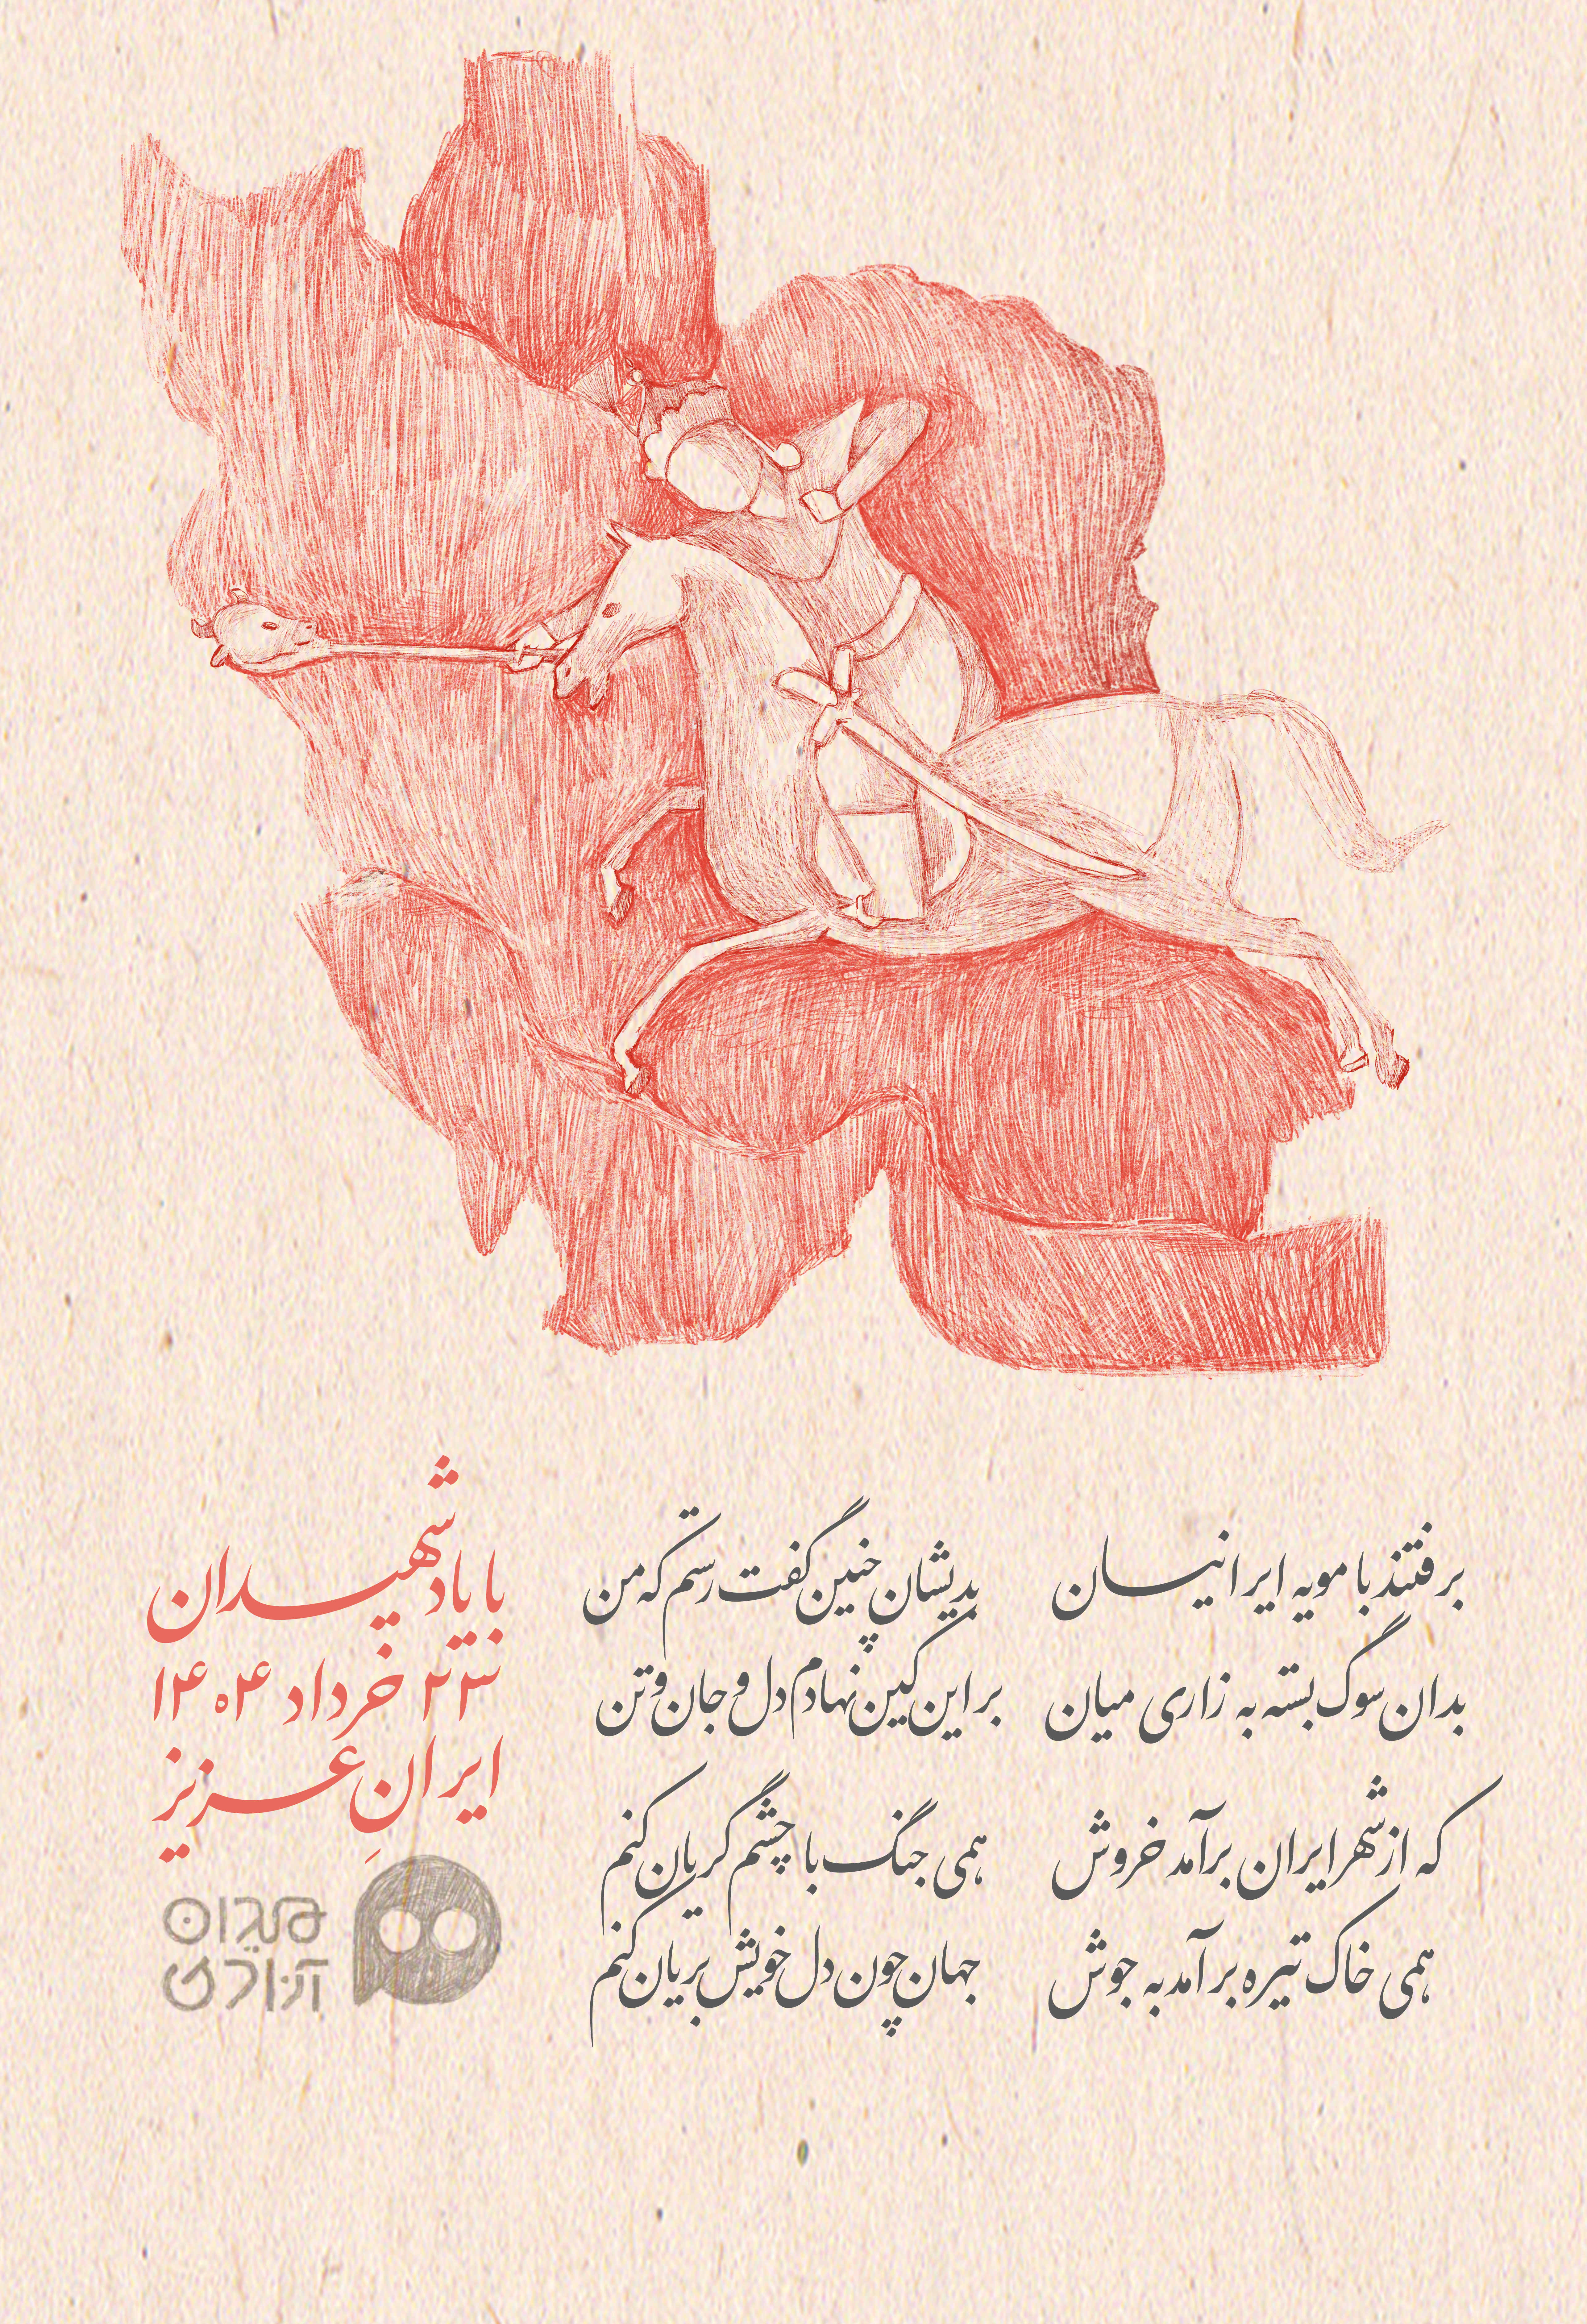 برفتند با مویه ایرانیان
بدان سوگ بسته به زاری میان
که از شهر ایران برآمد خروش
همی خاک تیره برآمد به جوش
بدیشان چنین گفت رستم که من
بر این کین نهادم دل و جان و تن
همی جنگ با چشم گریان کنم
جهان چون دل خویش بریان کنم
با یاد شهیدان
۲۳ خرداد ۱۴۰۴
ایرانِ عزیز
میدان
آزادی